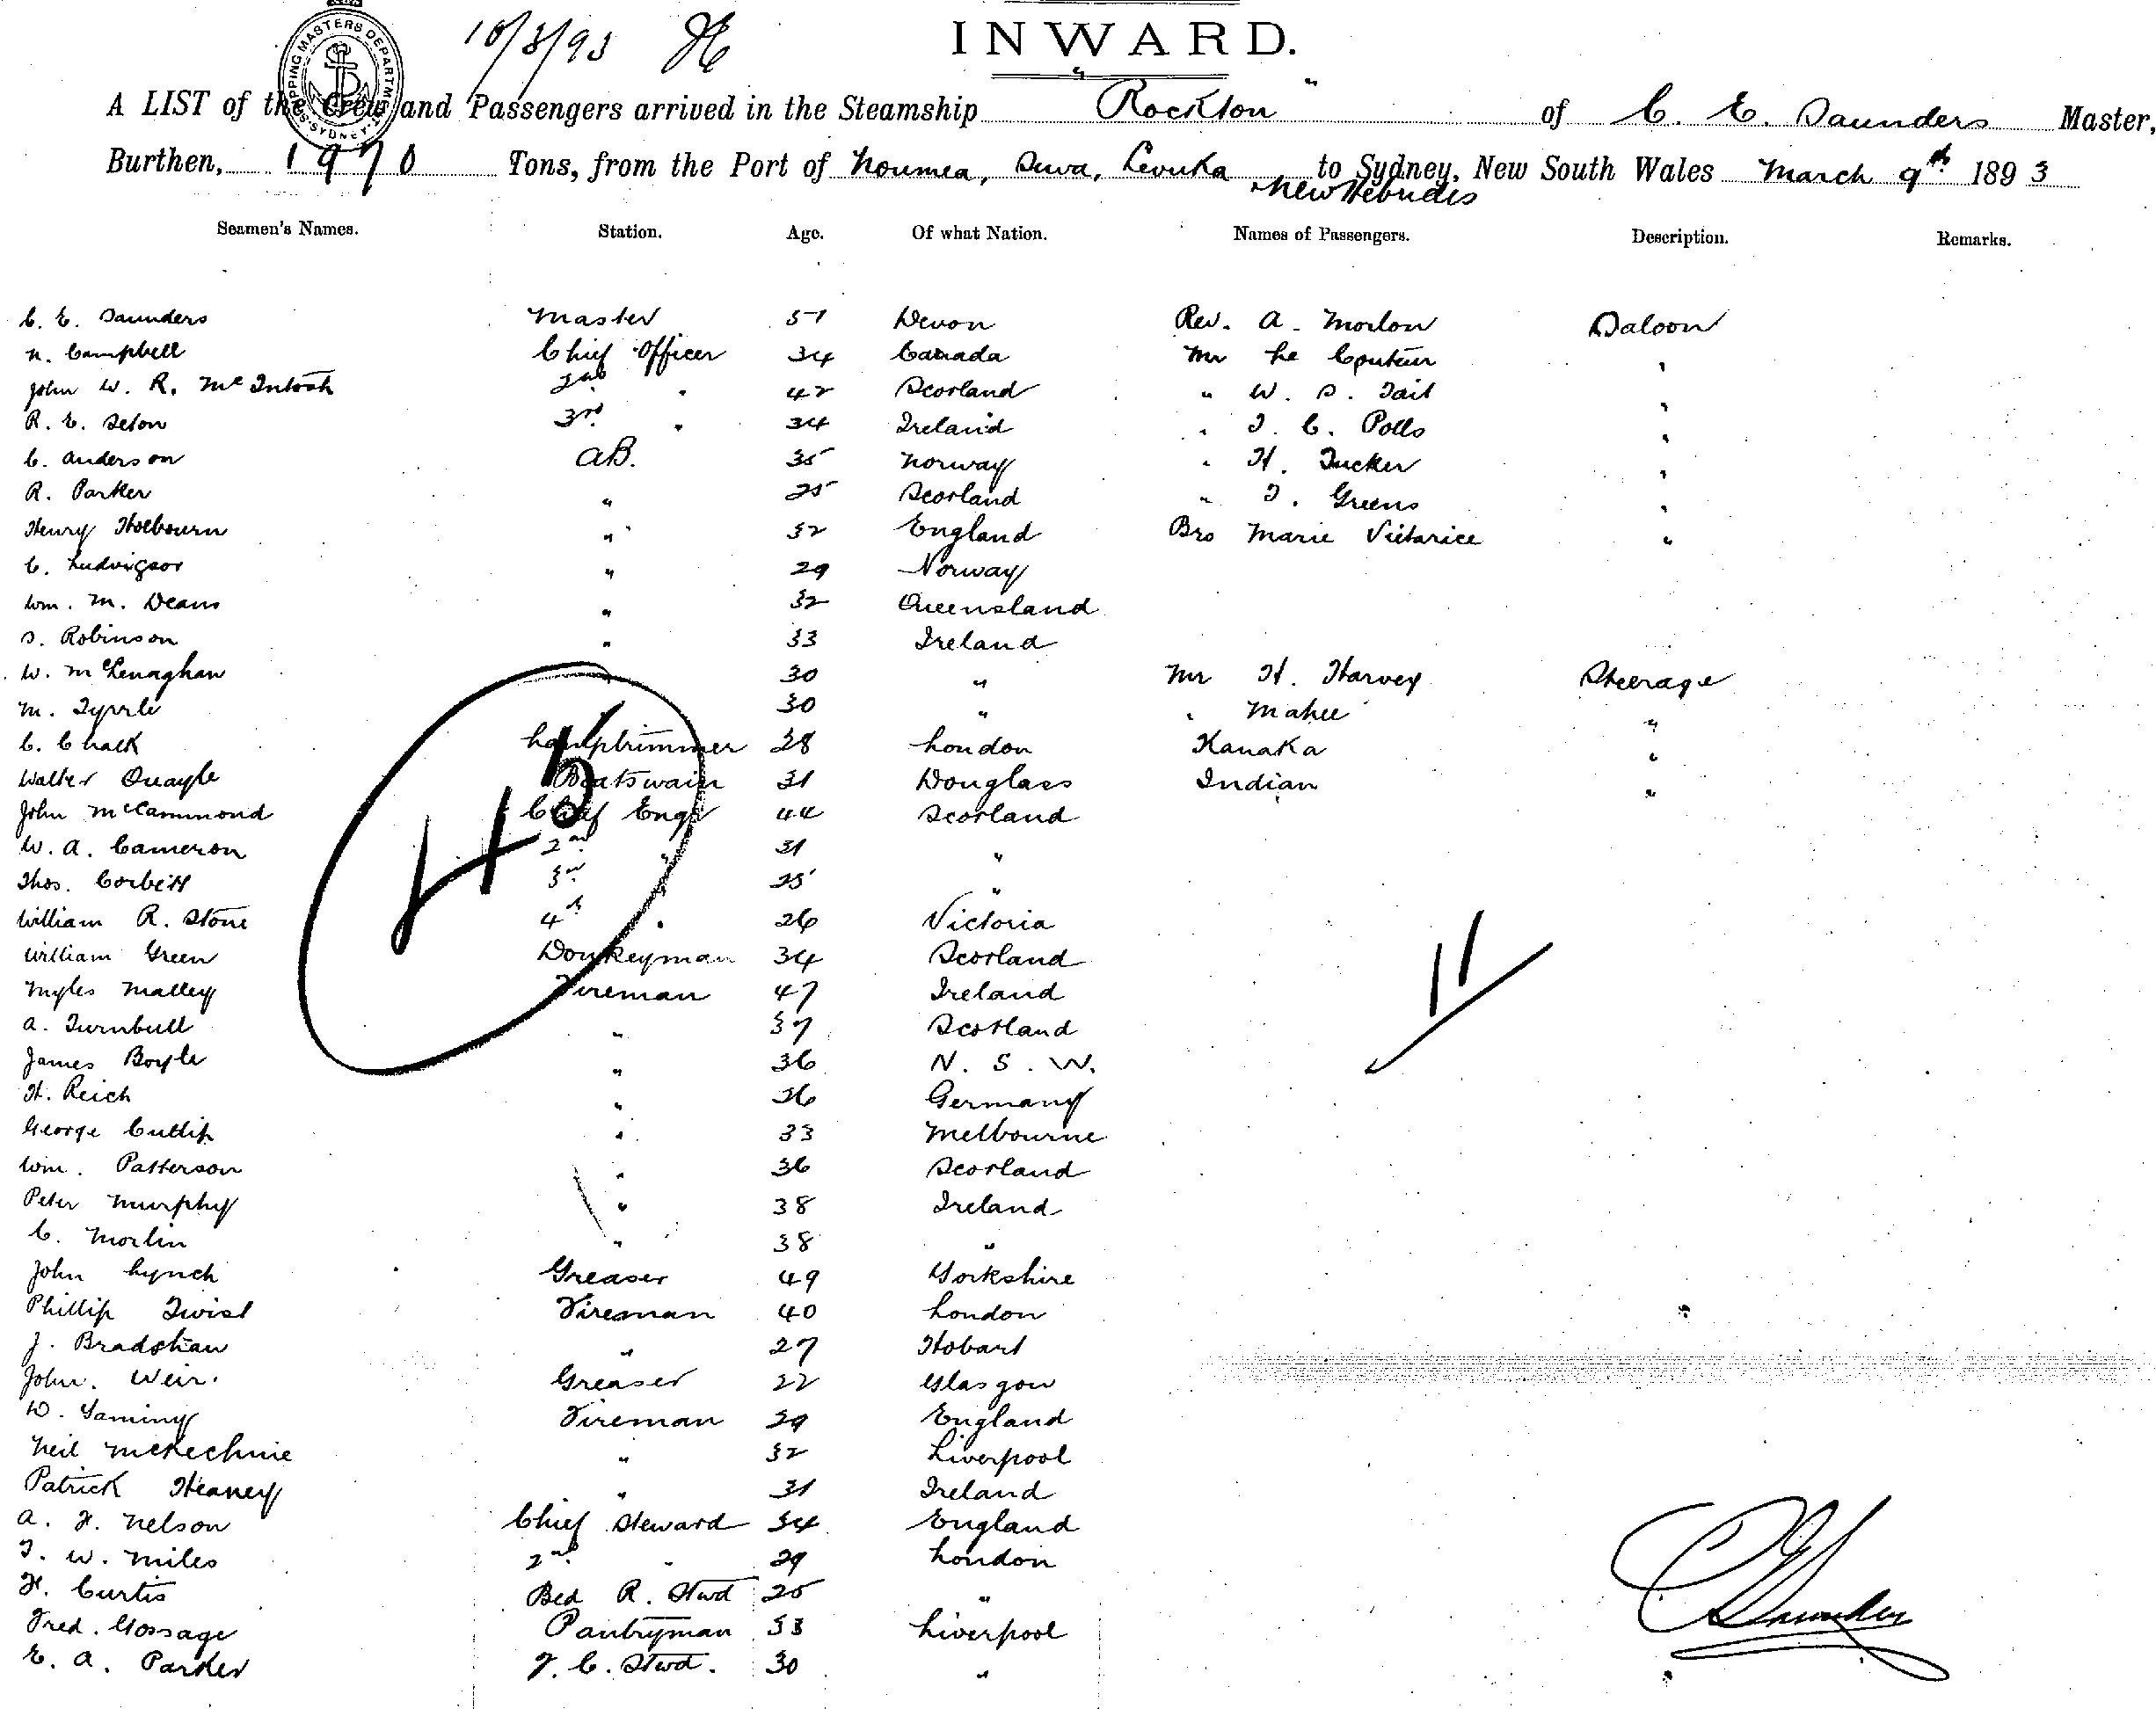 INWARD.
10/3/93
SHIPPING MASTERS DEPARTMENT SYDNEY
A LIST of the Crew and Passengers arrived in the Steamship "Rockton" of C. E. Saunders Master,
Burthen, 1970 Tons, from the Port of Noumea, Suva, Levuka to Sydney, New South Wales March 9th 1893
New Hebrides
Seamen's Names. Station. Age. Of what Nation. Names of Passengers. Description. Remarks.
C. E. Saunders Master 51 Devon Rev. A. Morton Saloon
N. Campbell Chief Officer 34 Canada Mr Le Couteur "
John W. R. McIntosh 2nd " 42 Scotland " W. S. Tait "
R. E. Seton 3rd " 34 Ireland " T. C. Potts "
C. Anderson AB. 35 Norway " H. Tucker "
R. Parker " 25 Scotland " T. Greens "
Henry Holbourn " 32 England Bro Marie Victarice "
C. Ludvigsor " 29 Norway
Wm. M. Deans " 32 Queensland
S. Robinson " 33 Ireland
W. McLenaghan 30 " Mr H. Harvey Steerage
M. Tyrrle 30 " " Mahee "
C. Chalk Lamptrimmer 28 London Kanaka "
Walter Quayle Boatswain 31 Douglass Indian "
John McCammond Chief Engr 44 Scotland
W. A. Cameron 2nd " 31 "
Thos. Corbett 3rd " 25 "
William R. Stone 4th " 26 Victoria
45
11
William Green Donkeyman 34 Scotland
Myles Malley Fireman 47 Ireland
A. Turnbull " 37 Scotland
James Boyle " 36 N. S. W.
H. Reich " 36 Germany
George Cutlip " 33 Melbourne
Wm. Patterson " 36 Scotland
Peter Murphy " 38 Ireland
C. Morlin " 38 "
John Lynch Greaser 49 Yorkshire
Phillip Twist Fireman 40 London
J. Bradshaw " 27 Hobart
John. Weir. Greaser 22 Glasgow
W. Taminy Fireman 29 England
Neil McKechnie " 32 Liverpool
Patrick Heaney " 31 Ireland
A. H. Nelson Chief Steward 34 England
T. W. Miles 2nd " 29 London
H. Curtis Bed R. Stwd 25 "
Fred. Gossage Pantryman 33 Liverpool
E. A. Parker F. C. Stwd. 30 "
C E Saunders